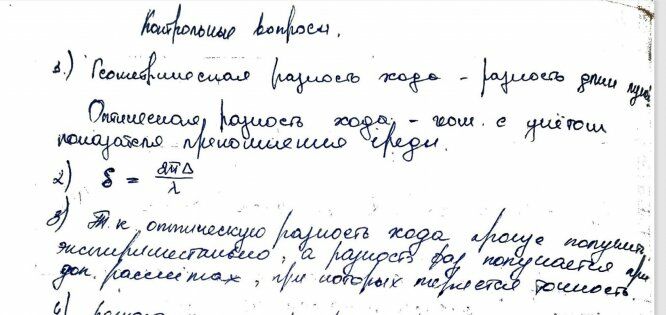 Контрольные вопросы.
1.) Геометрическая разность хода - разность длин путей
Оптическая разность хода - с учётом
показателя преломления среды.
2) δ = 2πΔ/λ
3) Т.к оптическую разность хода проще получить
экспериментально, а разность фаз получается при
доп. рассчётах, при которых теряется точность.
4)